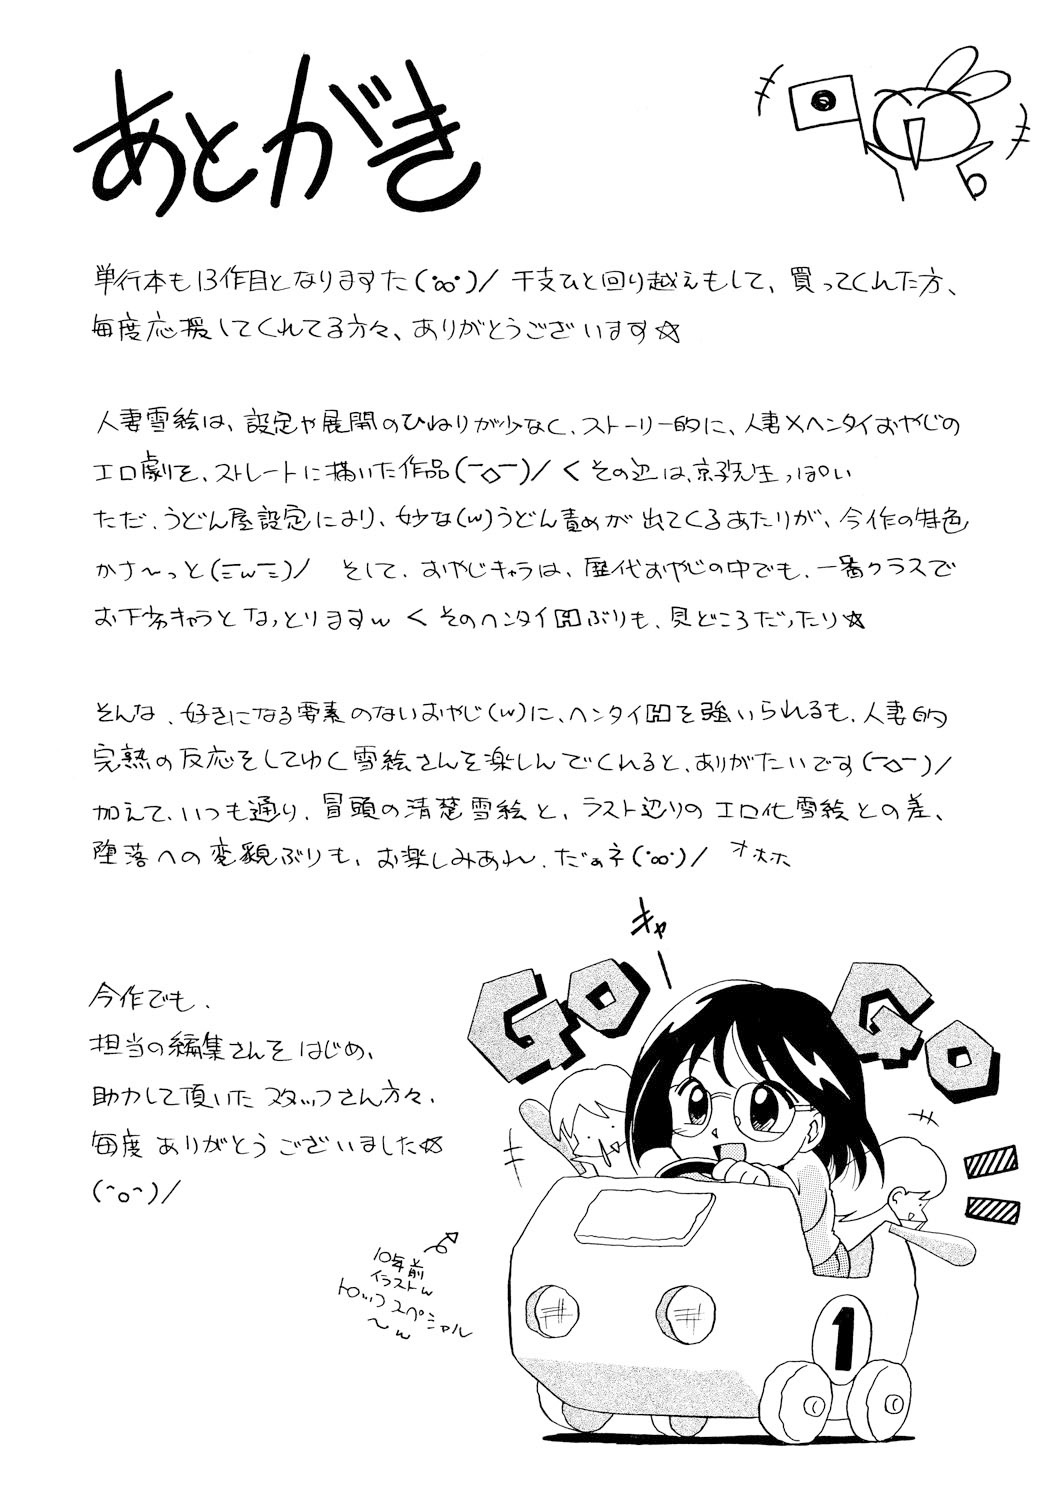 あとがき
単行本も13作目となりますた(・ω・)/ 干支ひと回り越えもして、買ってくんた方、
毎度応援してくれてる方々、ありがとうございます☆
人妻雪絵は、設定や展開のひねりが少なく、ストーリー的に、人妻×ヘンタイおやじの
エロ劇を、ストレートに描いた作品(￣◇￣)/ く その辺は、京子先生っぽい
ただ、うどん屋設定により、妙な(w)うどん責めが出てくるあたりが、今作の特色
かさ〜っと(ニwニ)/ そして、おやじキャラは、歴代おやじの中でも、一番クラスで
お下劣キャラとなっとりますw く そのヘンタイHぶりも、見どころだったり☆
そんな、好きになる要素のないおやじ(w)に、ヘンタイHを強いられるも、人妻的
完熟の反応をしてゆく雪絵さんを楽しんでくれると、ありがたいです(￣◇￣)/
加えて、いつも通り、冒頭の清楚雪絵と、ラスト辺りのエロ化雪絵との差、
堕落への変貌ぶりも、お楽しみあれ、だぁネ(・ω・)/ オホホ
キャ
GO GO
今作でも、
担当の編集さんをはじめ、
助力して頂いたスタッフさん方々、
毎度ありがとうございました☆
(^o^)/
10年前
イラストw
トップスペシャル
〜w
1